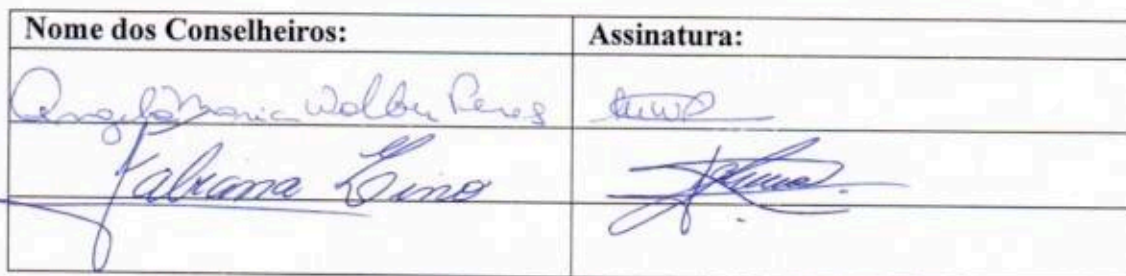 Nome dos Conselheiros: Assinatura:
Angela Maria Peres
Fabiana Lino